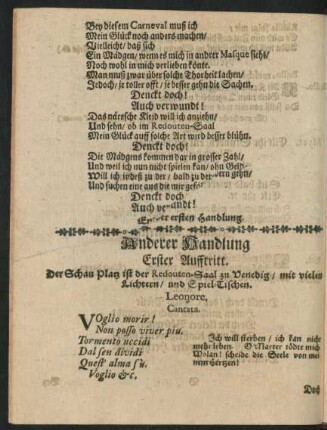 Bey diesem Carneval muß ich
Mein Glück noch anders machen/
Vielleicht/ daß sich
Ein Mädgen/ wenn es mich in andrer Masque sieht/
Noch wohl in mich verlieben könte.
Man muß zwar über solche Thorheit lachen/
Jedoch/ je toller offt/ je besser gehn die Sachen.
Denckt doch!
Auch verwundt!
Das närrsche Kleid will ich anziehn/
Und sehn/ ob im Redouten-Saal
Mein Glück auff solche Art wird besser blühn.
Denckt doch!
Die Mädgens kommen dar in grosser Zahl/
Und weil ich nun nicht spielen kan/ ohn Geld
Will ich indeß zu der/ bald zu der gehn/
Und suchen eine aus die mir gef
Denckt doch
Auch ve ndt!
er ersten Handlung.
Anderer Handlung
Erster Aufftritt.
Der Schau Platz ist der Redouten-Saal zu Venedig/ mit vielen
Lichtern/ und Spiel-Tischen.
Leonore,
Cantata.
Voglio morir!
Non posso viver piu.
Tormento uccidi
Dal sen dividi
Quest' alma sù.
Voglio &c.
Ich will sterben/ ich kan nicht
mehr leben. O Marter tödte mich
Wolan! scheide die Seele von mei-
nem Hertzen!
Doch